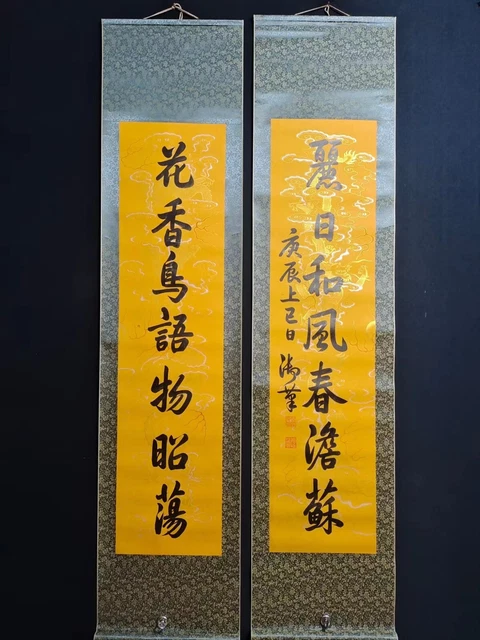 麗日和風春澹蘇
庚辰上巳日 御筆
花香鳥語物昭蕩